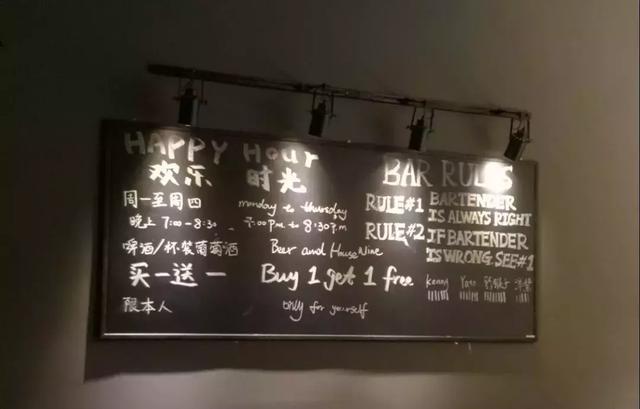 HAPPY HOUR
欢乐 时光
周一至周四 monday to thursday
晚上 7:00-8:30 7:00 p.m to 8:30 p.m
啤酒/杯装葡萄酒 Beer and House Wine
买一送一 Buy 1 get 1 free
限本人 only for yourself
BAR RULES
RULE#1 BARTENDER
IS ALWAYS RIGHT
RULE#2 IF BARTENDER
IS WRONG SEE#1
kenny